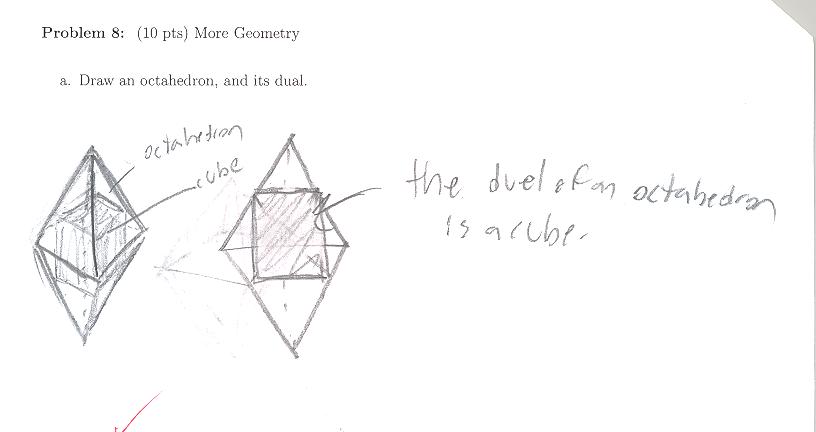 Problem 8: (10 pts) More Geometry
a. Draw an octahedron, and its dual.
octahedron
cube
the duel of an octahedron
is a cube.